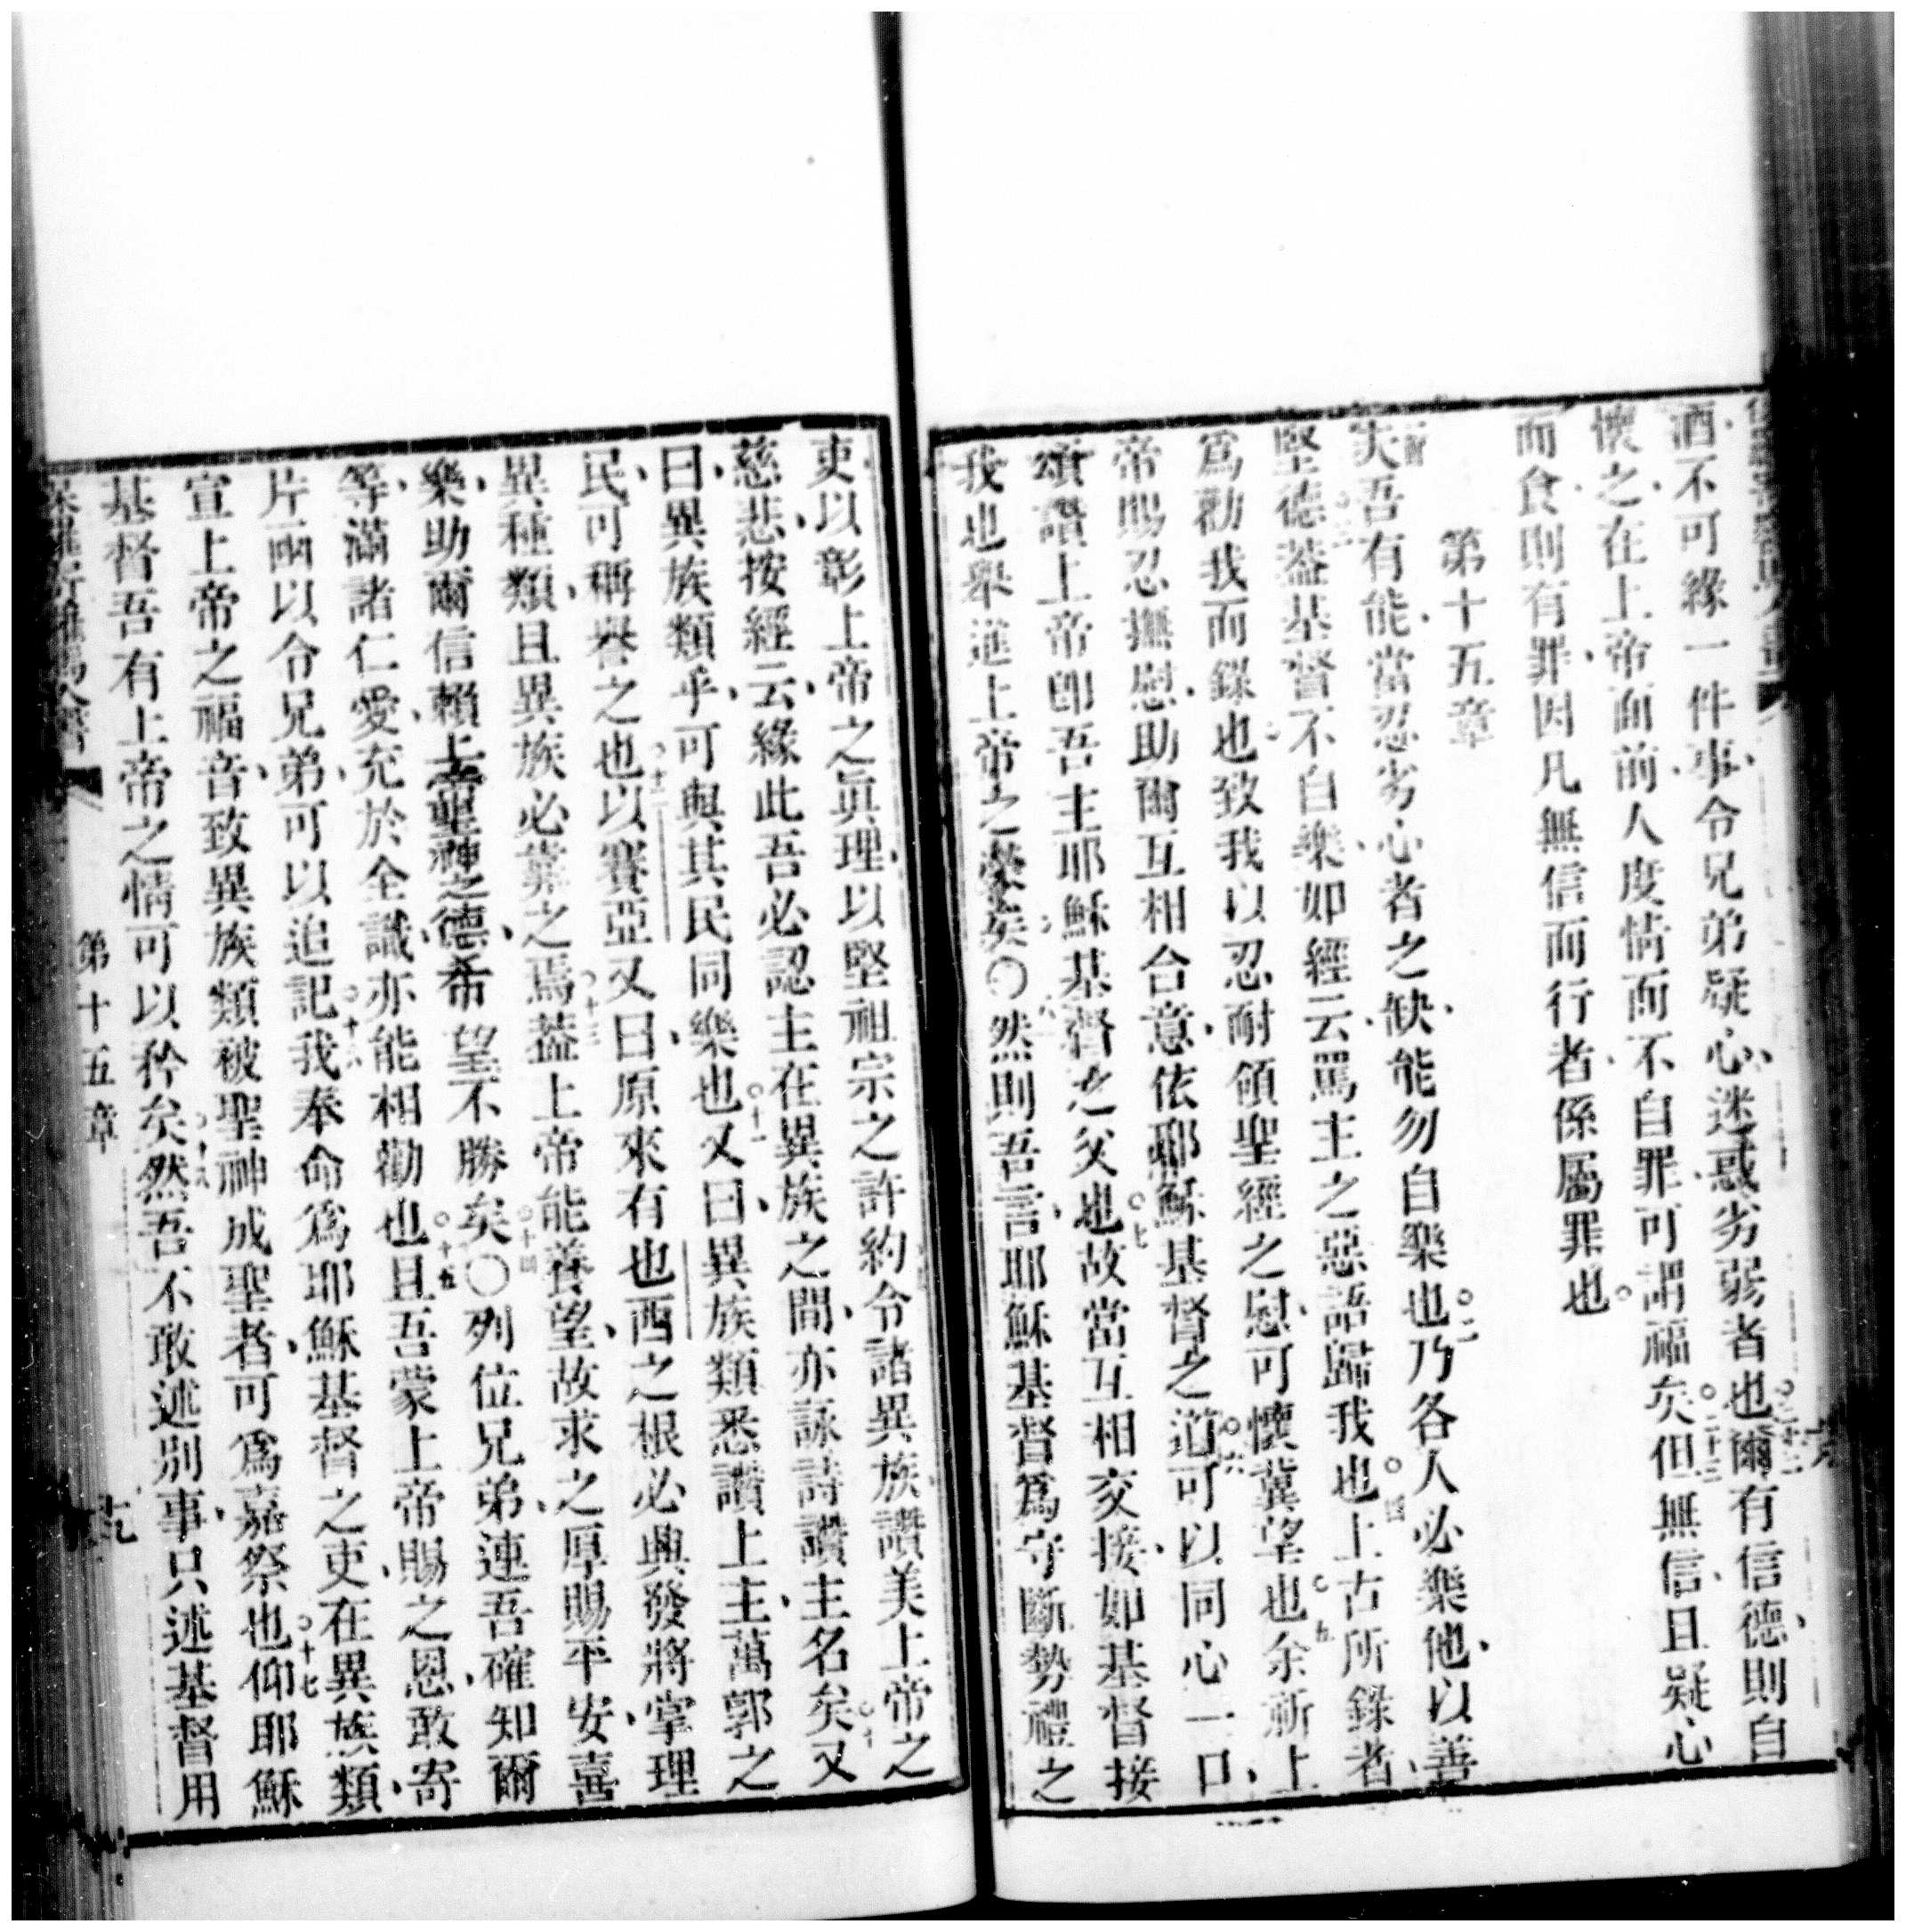 酒不可緣一件事令兄弟疑心迷惑劣弱者也○二十二爾有信德則自
懷之在上帝面前人度情而不自罪可謂福矣○二十三但無信且疑心
而食則有罪因凡無信而行者係屬罪也
第十五章
夫吾有能當忍劣心者之缺能勿自樂也○二乃各人必樂他以善
堅德○三蓋基督不自樂如經云罵主之惡語歸我也○四上古所錄者
爲勸我而錄也致我以忍耐領聖經之慰可懷冀望也○五余祈上
帝賜忍撫慰助爾互相合意依耶穌基督之道○六可以同心一口
頌讚上帝卽吾主耶穌基督之父也○七故當互相交接如基督接
我也舉進上帝之榮矣○八然則吾言耶穌基督爲守斷勢禮之
吏以彰上帝之眞理以堅祖宗之許約令諸異族讚美上帝之
慈悲按經云緣此吾必認主在異族之間亦詠詩讚主名矣○十又
曰異族類乎可與其民同樂也○十一又曰異族類悉讚上主萬郭之
民可稱譽之也○十二以賽亞又曰原來有也西之根必興發將掌理
異種類且異族必靠之焉○十三蓋上帝能養望故求之厚賜平安喜
樂助爾信賴上帝聖神之德希望不勝矣○十四○列位兄弟連吾確知爾
等滿諸仁愛充於全識亦能相勸也○十五且吾蒙上帝賜之恩敢寄
片函以令兄弟可以追記○十六我奉命爲耶穌基督之吏在異族類
宣上帝之福音致異族類被聖神成聖者可爲嘉祭也○十七仰耶穌
基督吾有上帝之情可以矜矣○十八然吾不敢述別事只述基督用
第十五章
十九